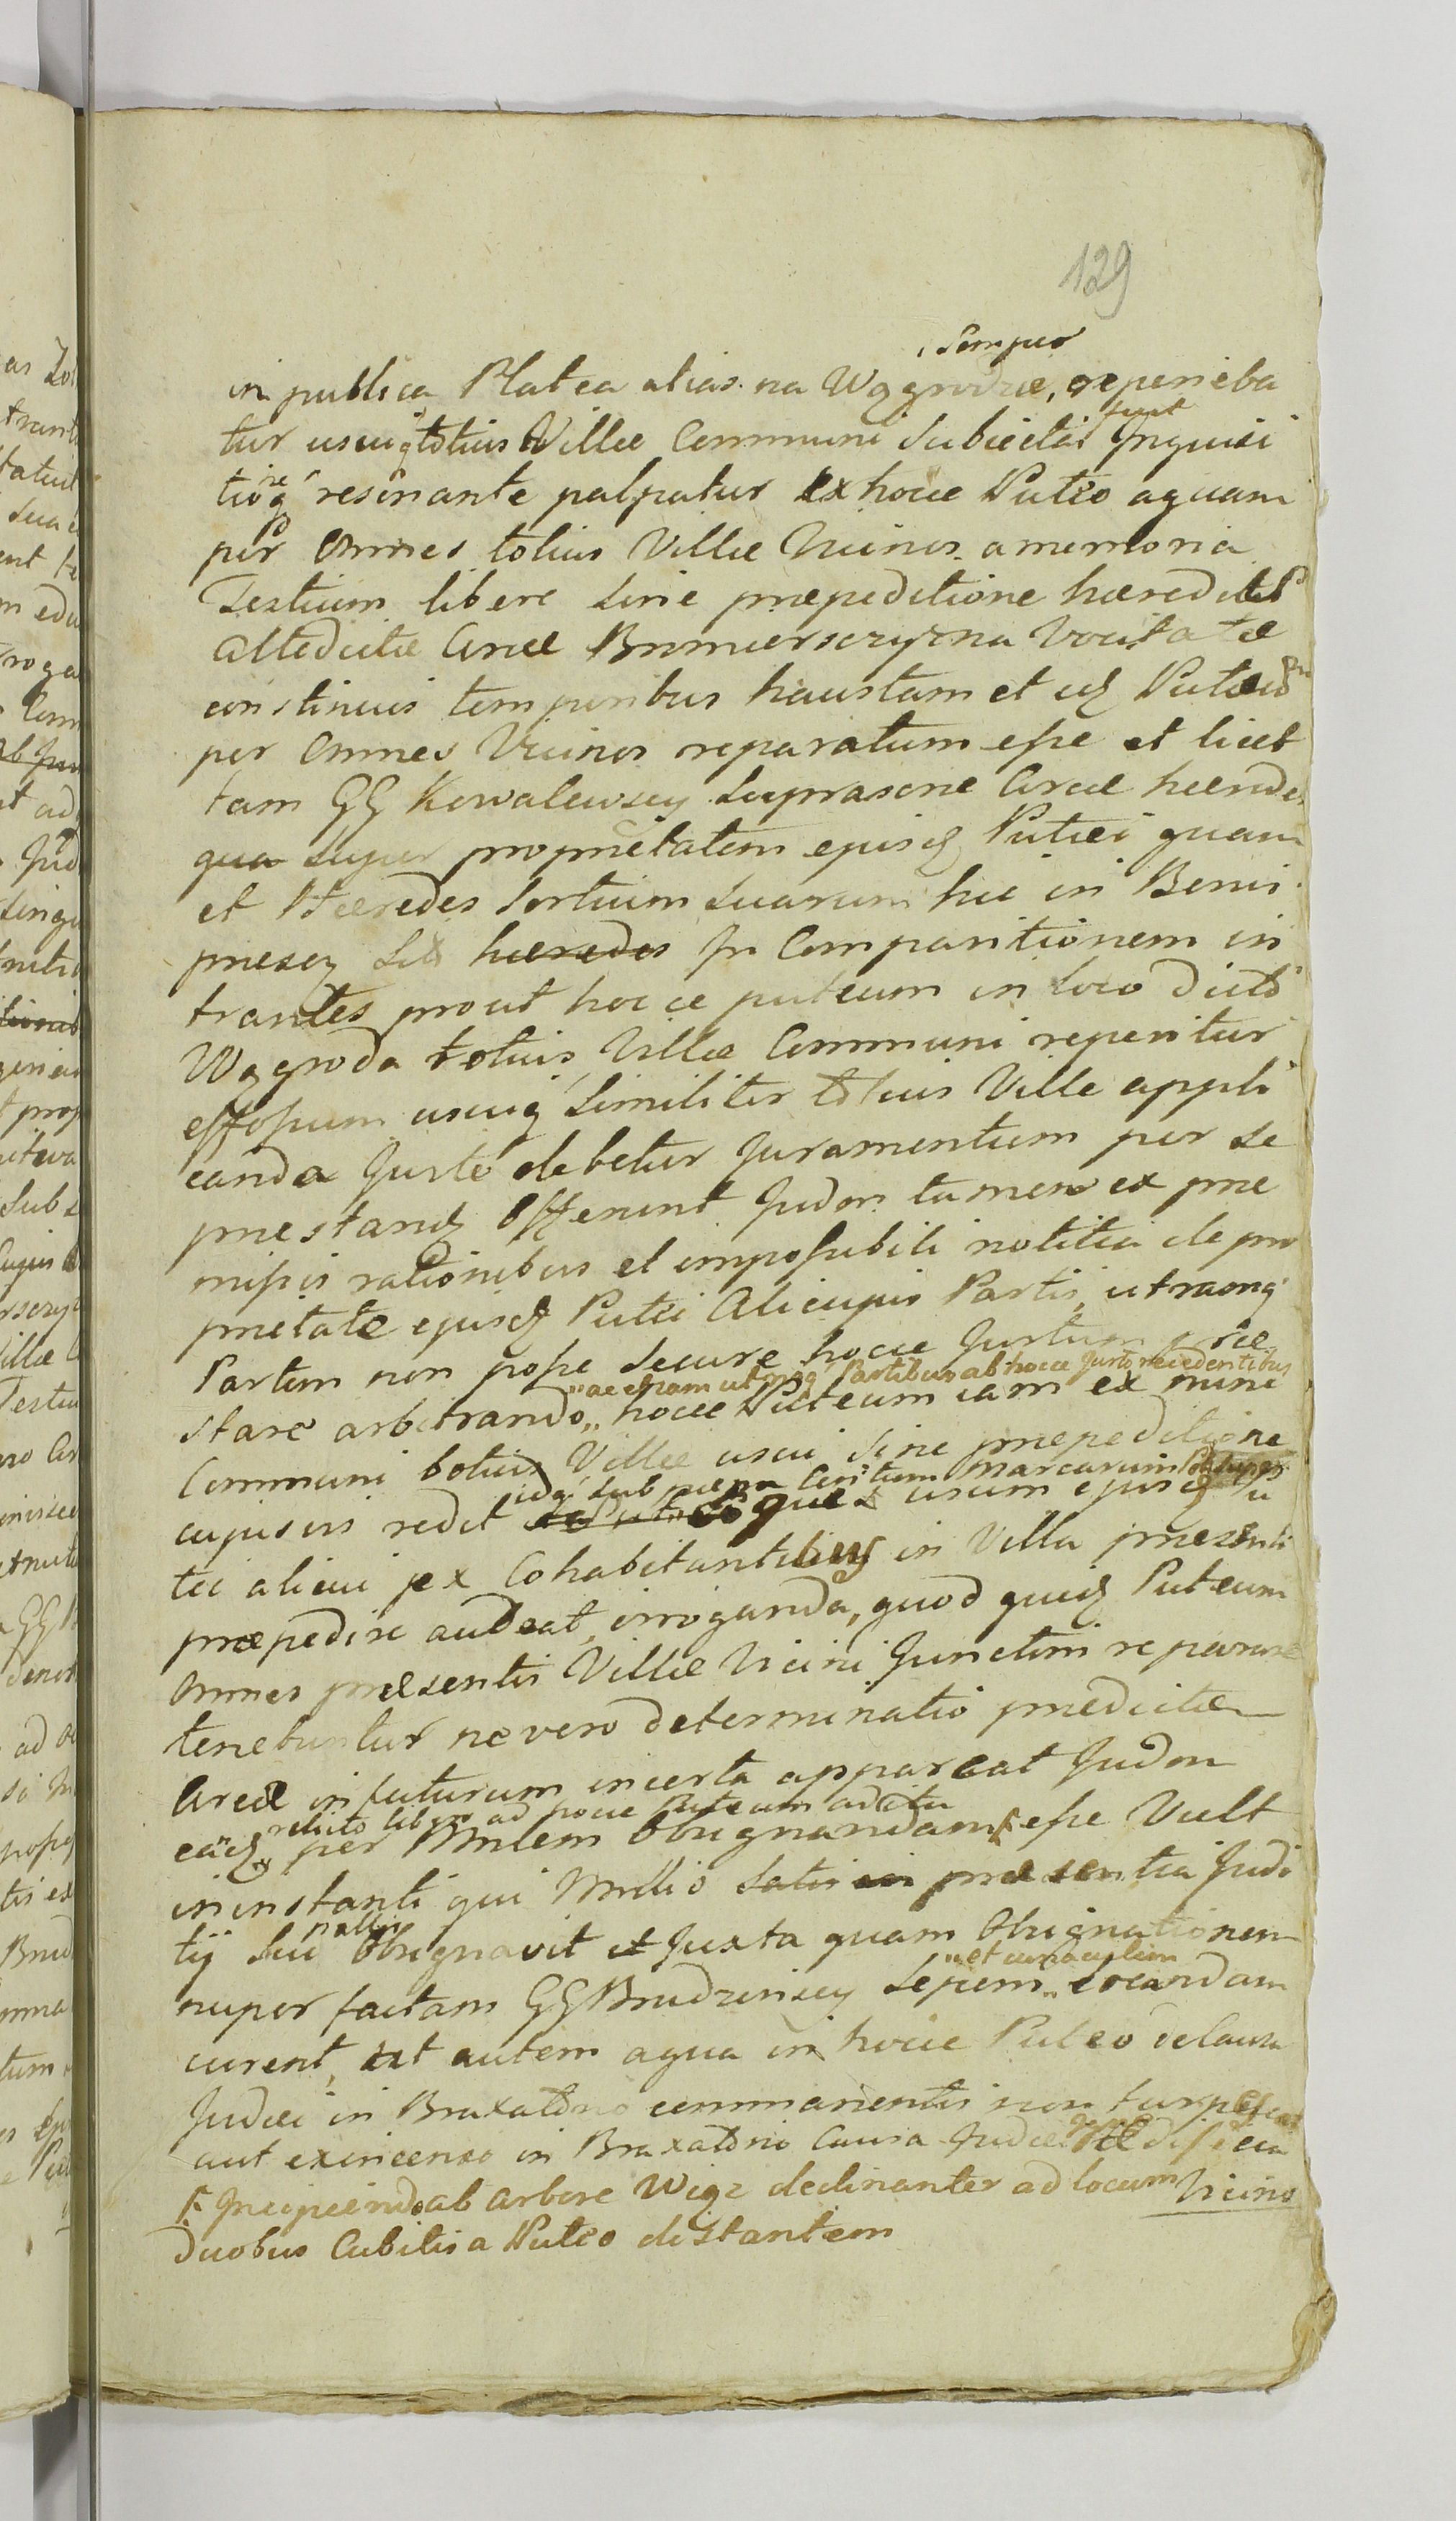 129
Semper
in publica Platea alias na Wągrodzie, reperieba
tur usuiq totius Villæ Communi Subiectus fuit Inquisi
tioneq resonante palpatur Ex hocce Puteo aquam
per Omnes totius Villæ Vicinos a memoria
Testium libere sine præpeditione hæredit
Attedictæ Areæ Browerszczyzna Vocitatæ
continuis temporibus haustam et eq Puteum
per Omnes Vicinos reparatum esse et licet
tam GG Kowalewscy Suprascriæ Areæ hæredes
qua super proprietatem ejusq Putei quam
et Hæredes Sortium Suarum hic in Bonis
præsen Sitt hæredes In Comparitionem in
trantes prout hocce puteum in Loco dicto
Wągroda totius Villæ Communi reperitur
effossum usuiq Similiter totius Ville appli
canda Juste debetur Juramentum per se
præstand Offerunt Judm tamen ex præ
missis rationibus et impossibili notitia de pro
prietate ejusq Putei Alicujus Partis, utramq
Partem non posse Secure hocce Jurtum præ
"ac etiam utrisq Partibus ab hocce Jurto recedentibus
stare arbitrando,, hocce Puteum iam ex nunc
Communi totius Villæ usui Sine præpeditione
idq sub pæna Centum Marcarum
cujusvis redit usum ejusq Pu
tei alicui ex Cohabitantibus in Villa præsenti
præpedire audeat, irroganda, quod quid Puteum
Omnes præsentis Villæ Vicini Junctim reparare
tenebuntur ne vero determinatio prædictæ
Areæ in futurum incerta appareat Judm
relicto libero ad hocce Puteum aditu
eaq per Mnlem Obsignandam esse Vult
in instanti qui Mnllis Satis in præsentia Judi
tij Sui pallis Obsignavit et Juxta quam Obsignationem
"et cunaculum
nuper factam GG Brudzinscy Sepem,, locandam
curent, ut autem aqua in hocce Puteo de Causa
Judæi in Braxatorio commanentis non turpescat
aut exincenso in Braxatorio Causa Judæi ædificia
Vicino
Incipiendo ab arbore Wiąz declinanter ad locum
duobus Cubitis a Puteo distantem